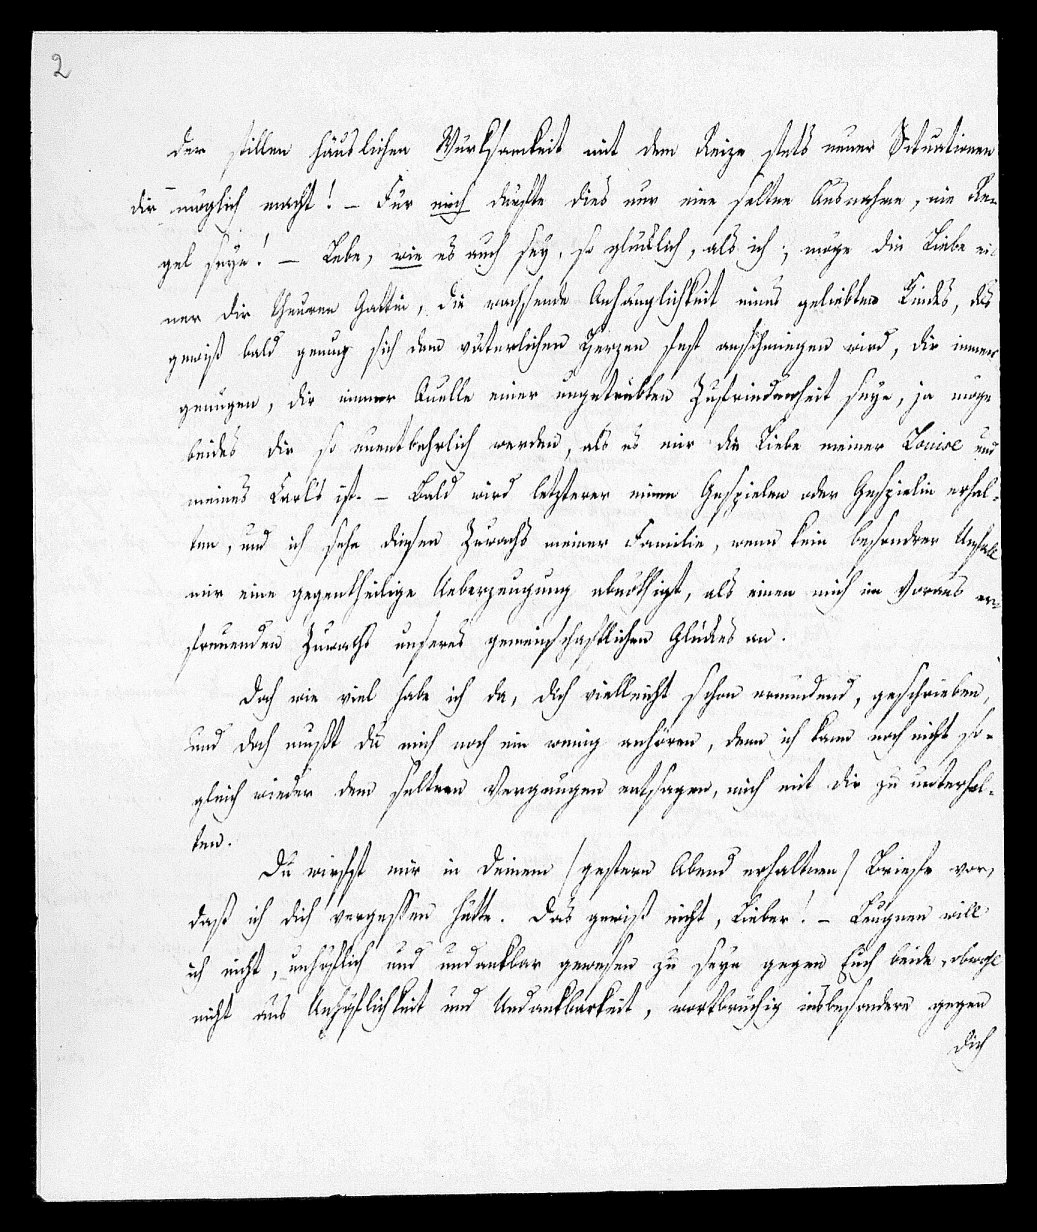 2
der stillen häuslichen Wurksamkeit mit dem Reize stets neuer Situationen
dir möglich macht! – Für mich dürfte dies nur eine seltne Ausnahme, nie Re-
gel seyn! – Lebe, wie es auch sey, so glücklich, als ich; möge die Liebe ei-
ner dir theuren Gattin, die wachsende Anhänglichkeit eines geliebten Kindes, das
gewiß bald genug sich dem väterlichen Herzen fest anschmiegen wird, dir immer
genügen, dir immer Quelle einer ungetrübten Zufriedenheit seyn, ja möge
beides dir so unentbehrlich werden, als es mir die Liebe meiner Louise und
meines Carls ist. – Bald wird letzterer einen Gespielen oder Gespielin erhal-
ten, und ich sehe diesen Zuwachs meiner Familie, wenn kein besondrer Unfall
mir eine gegentheilige Ueberzeugung abnöthigt, als einen mich im Voraus er-
freuenden Zuwachs unseres gemeinschaftlichen Glückes an.
Doch wie viel habe ich da, dich vielleicht schon ermüdend, geschrieben,
und doch mußt du mich noch ein wenig anhören, denn ich kann noch nicht so-
gleich wieder dem seltnen Vergnügen entsagen, mich mit dir zu unterhal-
ten.
Du wirfst mir in Deinem /gestern Abend erhaltnen/ Briefe vor,
daß ich dich vergessen hätte. Das gewiß nicht, Lieber! – Leugnen will
ich nicht, unhöflich und undankbar gewesen zu seyn gegen Euch beide, obwohl
nicht aus Unhöflichkeit und Undankbarkeit, wortbrüchig insbesondere gegen
dich